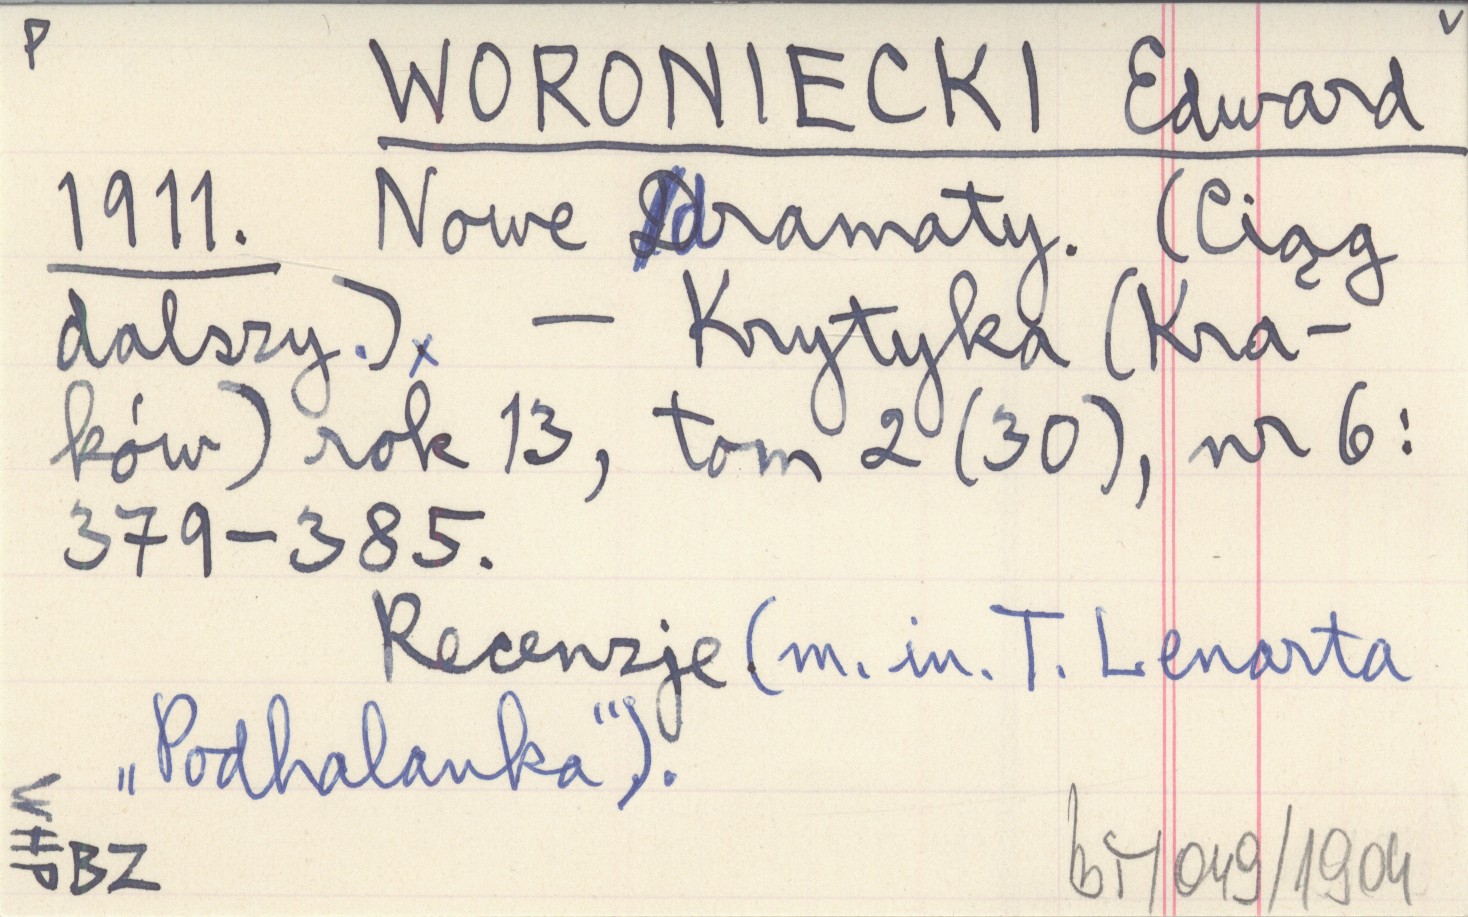 P
v
WORONIECKI Edward
1911. Nowe dramaty. (Ciąg
dalszy.)x — Krytyka (Kra-
ków) rok 13, tom 2 (30), nr 6:
379-385.
Recenzje (m. in. T. Lenarta
„Podhalanka").
BZ
/049/1904